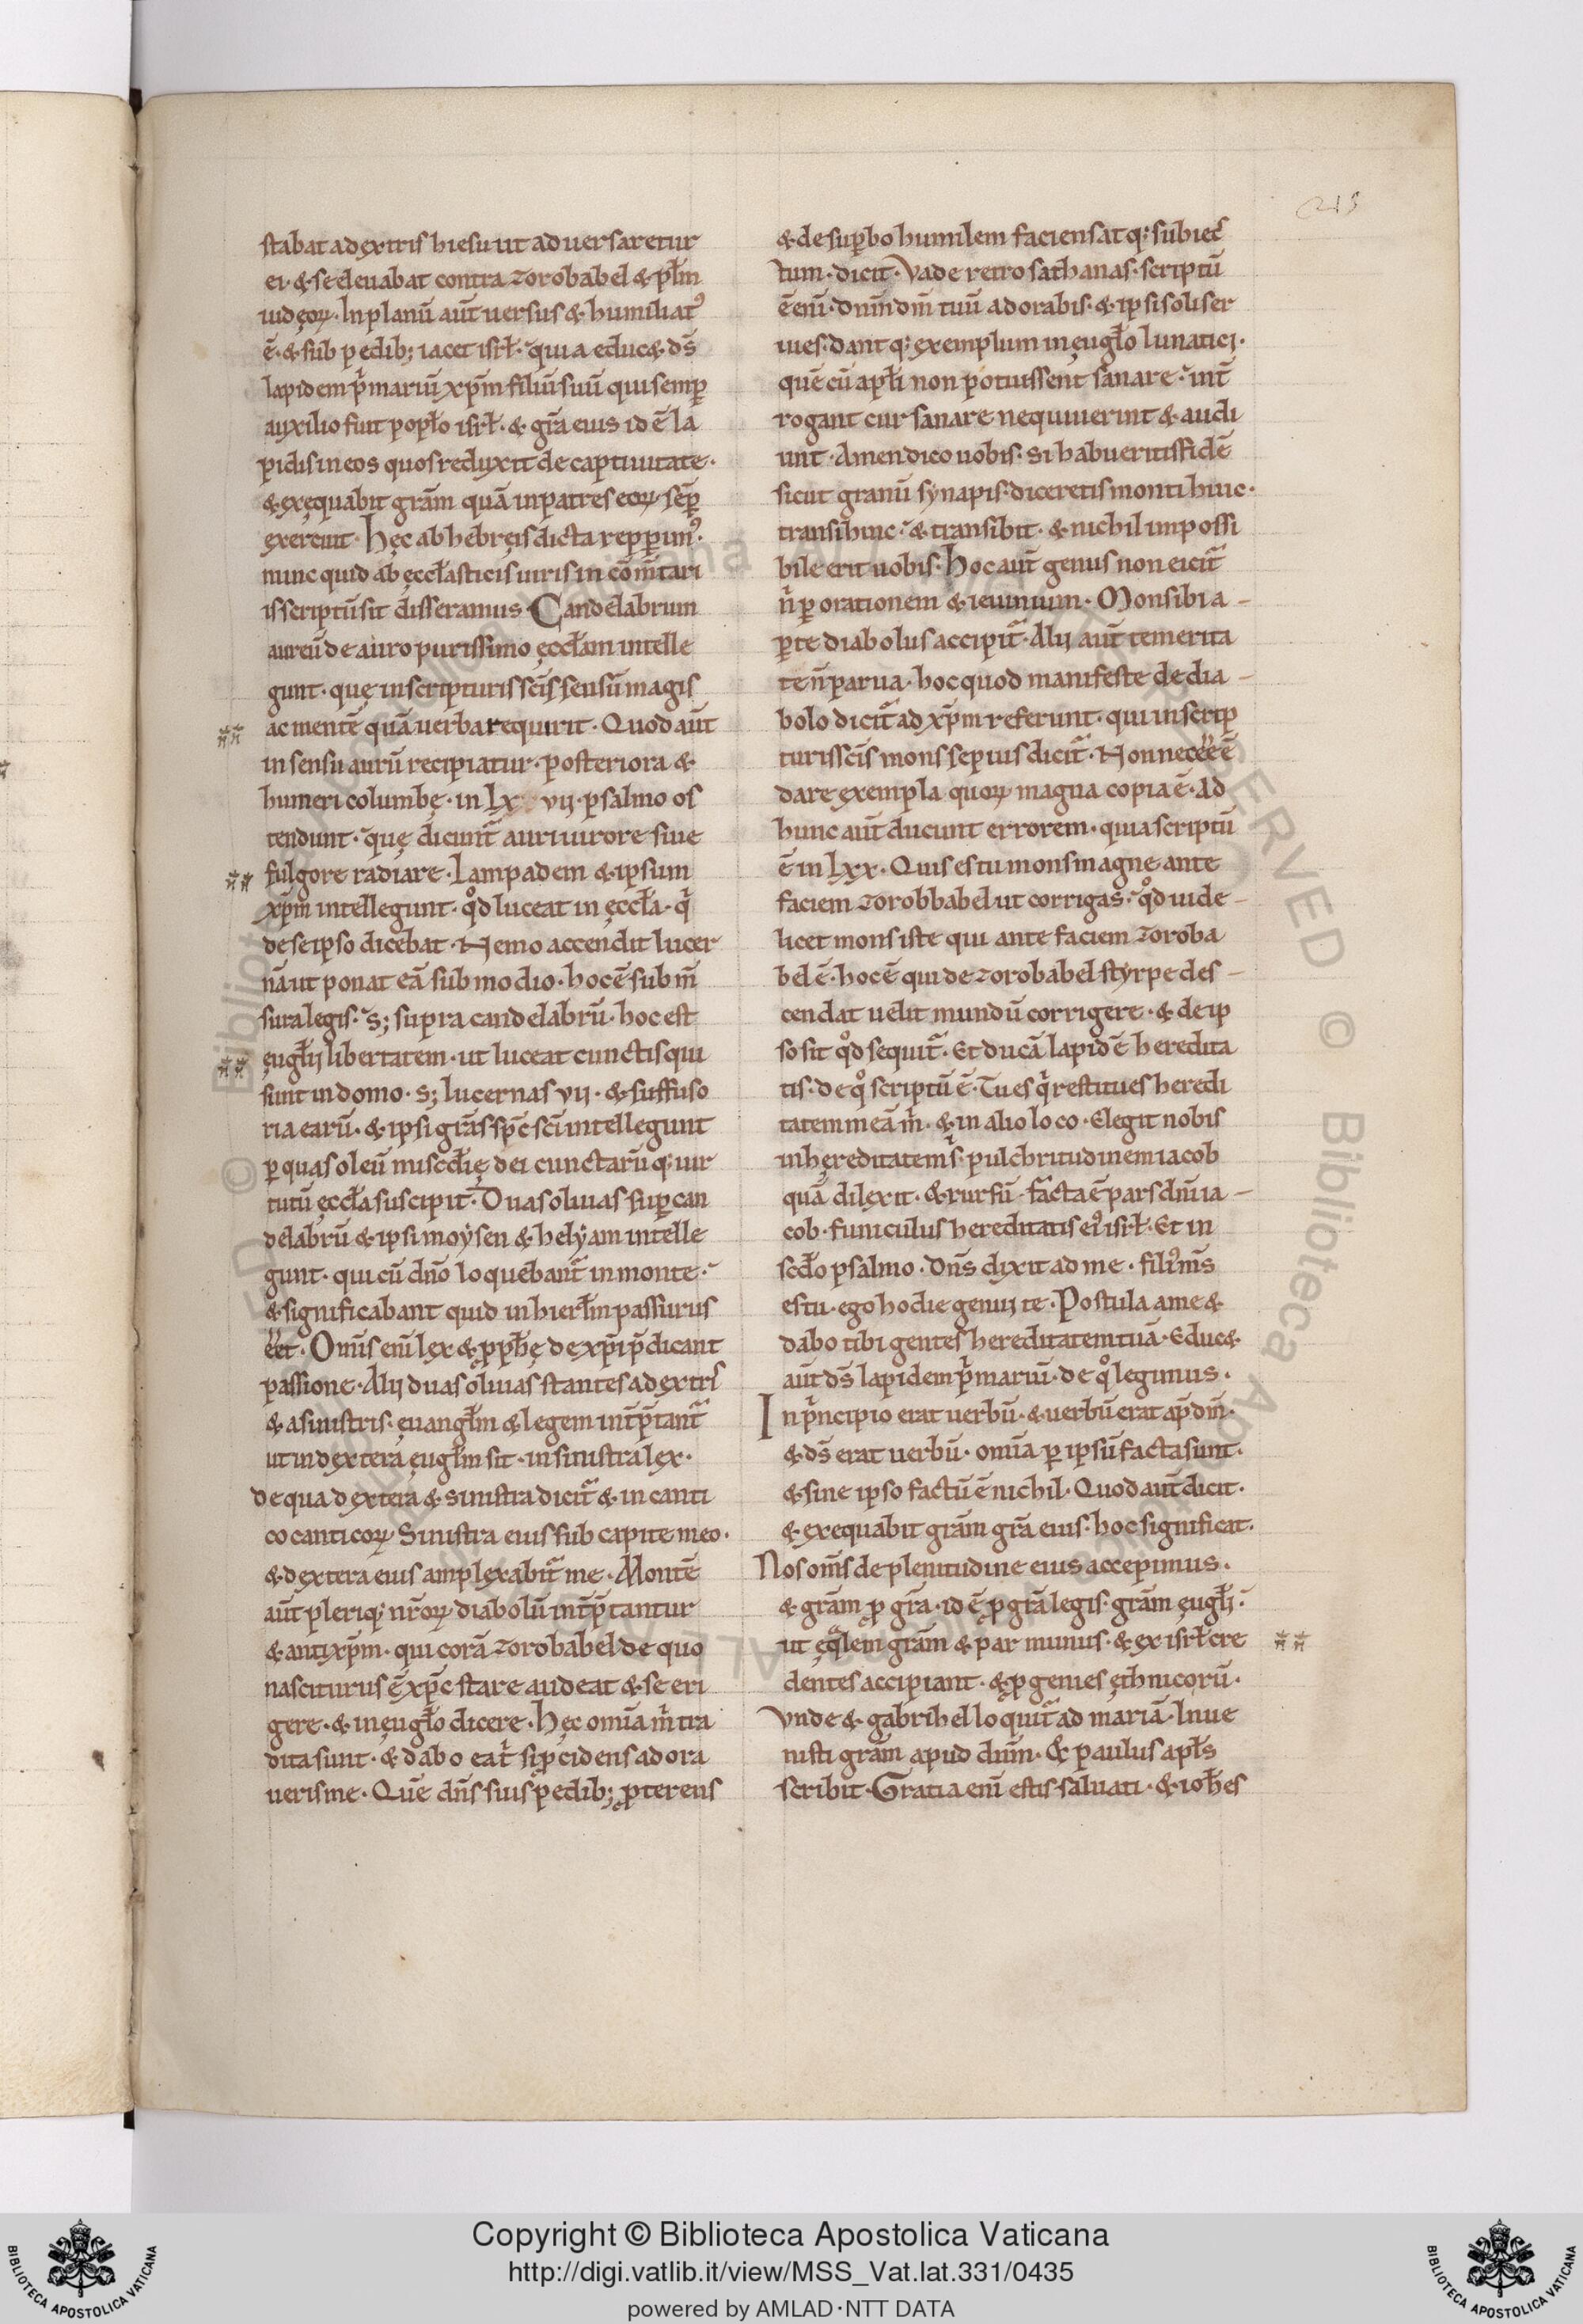 215
stabat a dextris hiesu ut aduersaretur
ei· & se eleuabat contra zorobabel & pl̄m
iudęoꝝ· In planū aūt uersus & humiliatꝰ
ē· & sub pedib; iacet isrł· quia educ& ds̄
lapidem p̄mariū xp̄m filiū suū qui semp̄
auxilio fuit popl̄o isrł· & gr̄a eius id ē la
pidis in eos quos reduxit de captiuitate·
& exęquabit gr̄am quā in patres eoꝝ sēp̄
exercuit· hęc ab hebręis dicta reppimꝰ·
nunc quid ab ęccl̄asticis uiris in cōm̄tari
is scriptū sit disseramus· Candelabrum
aureū de auro purissimo ęccl̄am intelle
gunt· quę in scripturis sc̄is sensū magis
ac mentē quā uerba requirit· Quod aūt
in sensu aurū recipiatur· posteriora &
humeri columbę· in lx vij· psalmo os
tendunt· quę dicunt᷑ auri uirore siue
fulgore radiare· Lampadem & ipsum
xp̄m intellegunt· qd̊ luceat in ęccl̄a· q̇
de se ipso dicebat· Nemo accendit lucer
nā ut ponat eā sub modio· hoc ē sub m̄
sura legis· s; supra candelabrū· hoc est
ęugl̄ij libertatem· ut luceat cunctis qui
sunt in domo· s; lucernas vij· & suffuso
ria earū· & ipsi gr̄as sp̄c sc̄i intellegunt
ꝑ quas oleū miscd̄ię dei cunctarū q; uir
tutū ęccl̄a suscipit· Duas oliuas suꝑ can
delabrū & ipsi moẏsen & helẏam intelle
gunt· qui cū dn̄o loquebant᷑ in monte·
& significabant quid in hierl̄m passurus
ēet· Om̄s eni̅ lex & ꝓph̄ę de xp̄i p̄dicant
passione· Alij duas oliuas stantes a dextris
& a sinistris· euangl̄m & legem int̄p̄tant᷑
ut in dextera ęugl̄m sit· in sinistra lex·
de qua dextera & sinistra dicit᷑ & in canti
co canticoꝝ Sinistra eius sub capite meo·
& dextera eius amplexabit᷑ me· Montē
aūt pleriq; nr̄oꝝ diabolū int̄p̄tantur
& antixp̄m· qui corā zorobabel de quo
nasciturus ē xp̄c stare audeat & se eri
gere· & in ęugl̄o dicere· hęc omia m̄ tra
dita sunt· & dabo ea t̄ si p̄cidens adora
ueris me· Quē dn̄s suis pedib; ꝓterens
& de suꝑbo humilem faciens atq; subiec
tum· dicit· Vade retro sathanas· scriptū
ē eni̅· dn̄m dm̄ tuū adorabis· & ipsi soli ser
uies· dant q; exemplum in ęugl̄o lunatici·
quē cū apl̄i non potuissent sanare· int̄
rogant cur sanare nequiuerint & audi
unt· Amen dico uobis· si habueritis fidē
sicut granū synapis· diceretis monti huic·
transi hinc· & transibit· & nichil impossi
bile erit uobis· hoc aūt genus non eicit᷑
n̄ ꝑ orationem & ieiunium· Mons ibi a
ꝑte diabolus accipit᷑· Alij aūt temerita
te n̄ parua· hoc quod manifeste de dia
bolo dicit᷑ ad xp̄m referunt· qui in scrip
turis sc̄is mons sępius dicit᷑· Non necēe ē
dare exempla quoꝝ magna copia ē· Ad
hunc aūt ducunt errorem· quia scriptū
ē in lxx· Quis es tu mons magne ante
faciem zorobbabel ut corrigas· qd̊ uide
licet mons iste qui ante faciem zoroba
bel ē· hoc ē qui de zorobabel styrpe des
cendat uelit mundū corrigere· & de ip
so sit qd̊ sequit᷑· Et ducā lapidē heredita
tis· de qͦ scriptū ē· Tu es q̇ restitues heredi
tatem meā m̄· & in alio loco· Elegit nobis
in hęreditatem s· pulchritudinem iacob
quā dilexit· & rursū· facta ē pars dn̄i ia
cob· funiculus hereditatis eiꝰ isrł· Et in
scd̄o psalmo· Dn̄s dixit ad me· filiꝰ m̄s
es tu· ego hodie genui te· Postula a me &
dabo tibi gentes hereditatem tuā· Educ&
aūt ds̄ lapidem p̄mariū· de qͦ legimus·
In p̄ncipio erat uerbū· & uerbū erat ap̄ dm̄·
& ds̄ erat uerbū· omīa ꝑ ipsū facta sunt·
& sine ipso factū ē nichil· Quod aūt dicit·
& exequabit gr̄am gr̄a eius· hoc significat·
Nos om̄s de plenitudine eius accepimus·
& gr̄am ꝓ gr̄a· id ē ꝓ gr̄a legis· gr̄am ęugl̄ij·
ut ęq̄lem gr̄am & par munus· & ex isrł cre
dentes accipiant· & ꝓgenies ęthnicorū·
Vnde & gabrihel loquit᷑ ad mariā· Inue
nisti gr̄am apud dn̄m· & paulus apl̄s
scribit· Gratia eni̅ estis saluati· & ioh̄es
Copyright © Biblioteca Apostolica Vaticana
http://digi.vatlib.it/view/MSS_Vat.lat.331/0435
powered by AMLAD·NTT DATA
BIBLIOTECA APOSTOLICA VATICANA
BIBLIOTECA APOSTOLICA VATICANA